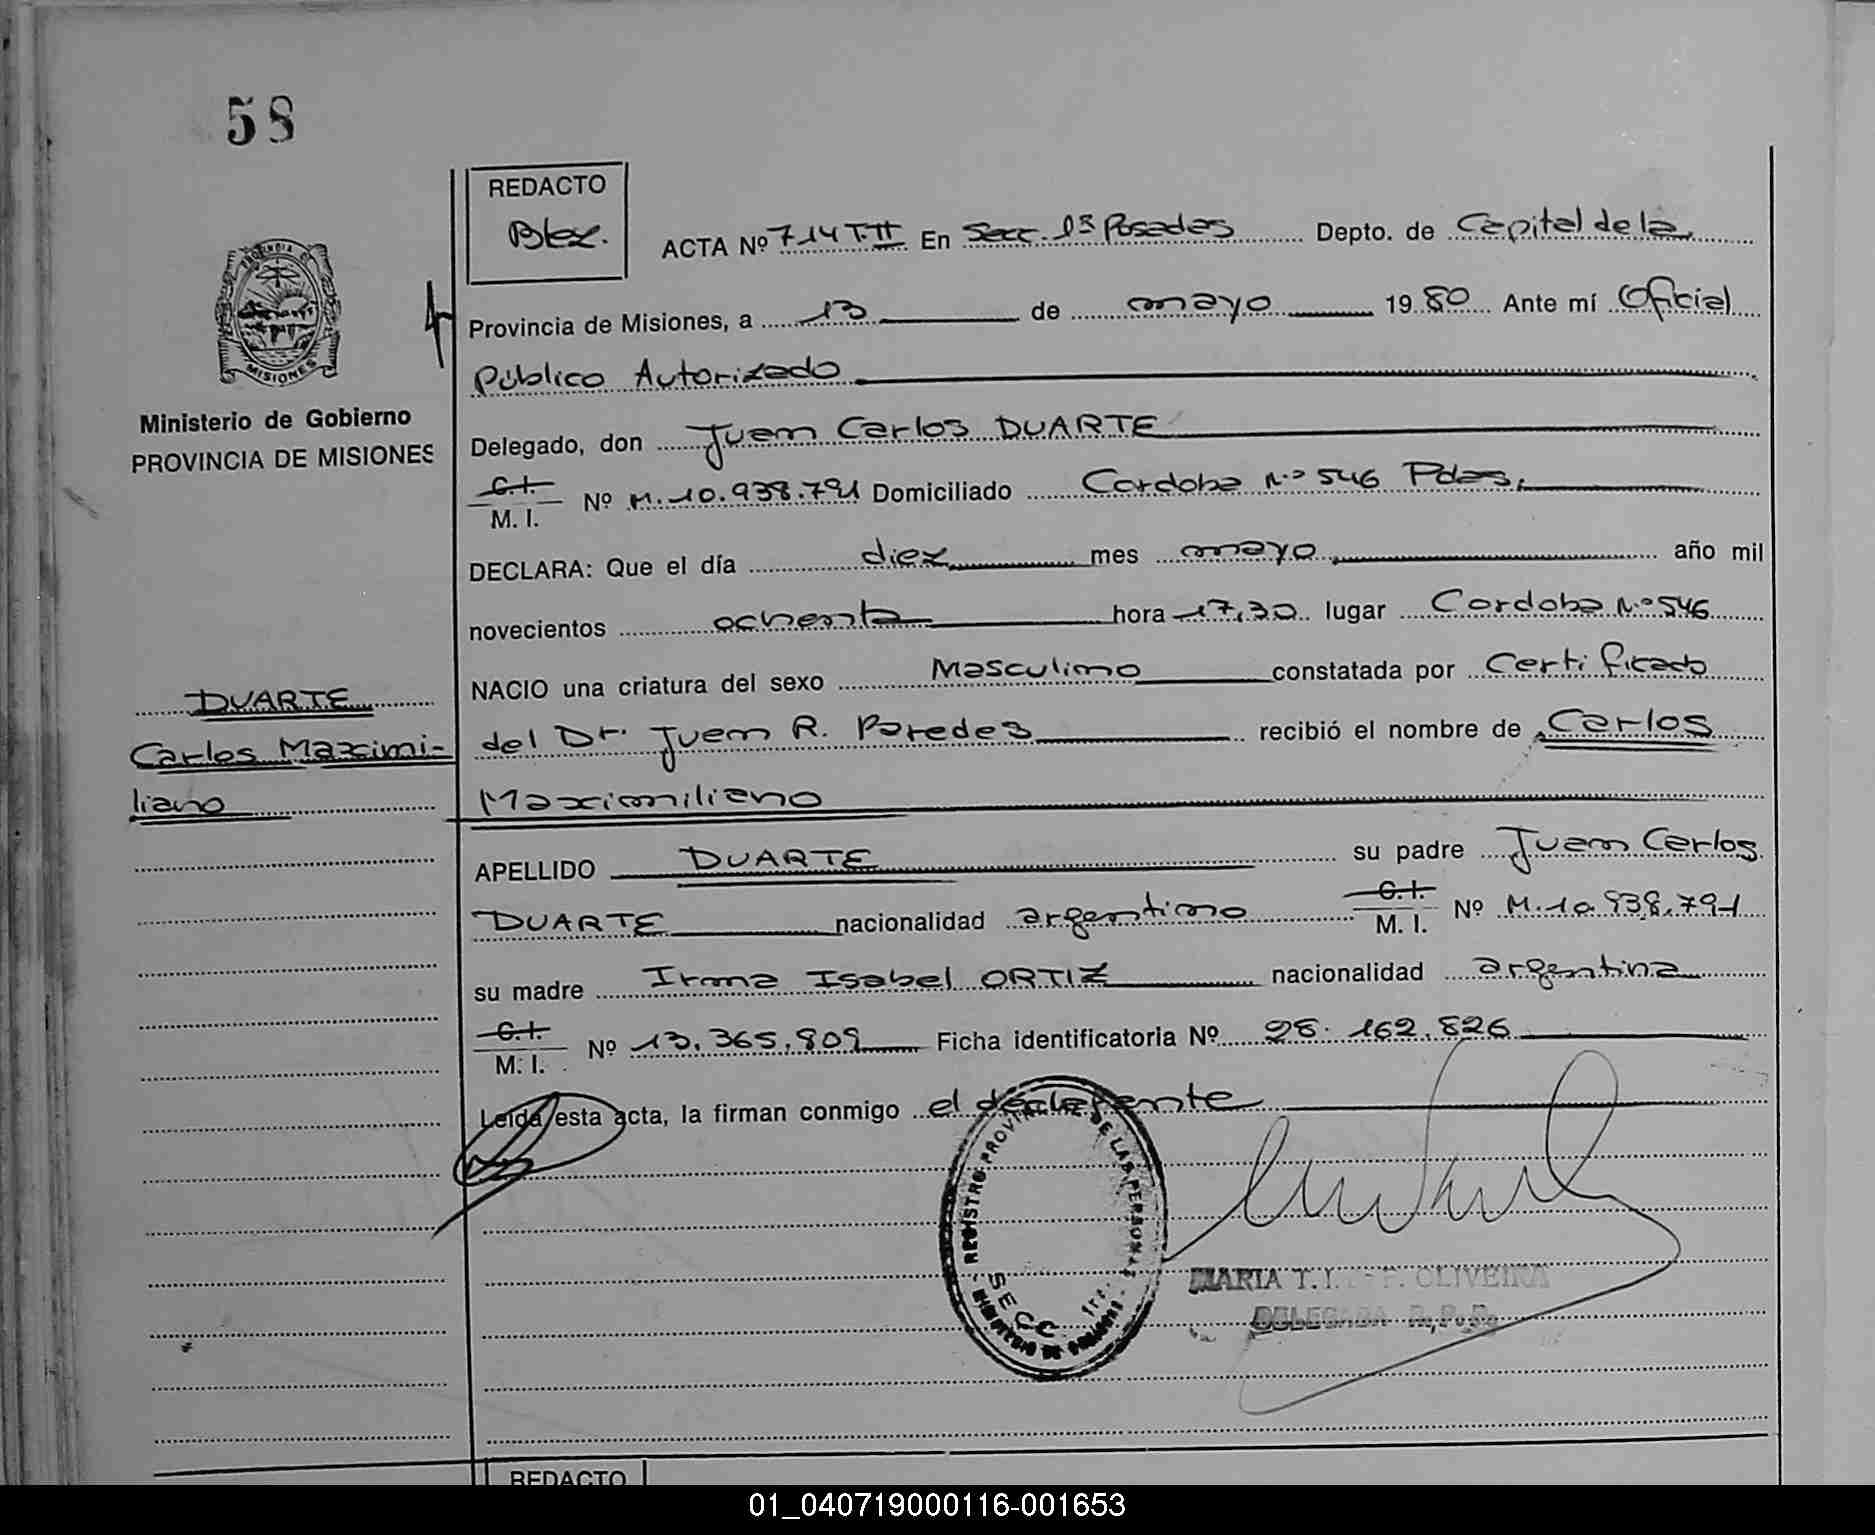 58
REDACTO
Blex.
ACTA Nº 714 T.II En Secc. 1ª Posadas Depto. de Capital de la
Provincia de Misiones, a 13 de mayo 1980 Ante mí Oficial
Público Autorizado
Delegado, don Juan Carlos DUARTE
C.I. M.I. Nº M. 10.938.791 Domiciliado Cordoba Nº 546 Pdas.
DECLARA: Que el día diez mes mayo año mil
novecientos ochenta hora 17,30 lugar Cordoba Nº 546
NACIO una criatura del sexo Masculino constatada por Certificado
del Dr. Juan R. Paredes recibió el nombre de Carlos
Maximiliano
APELLIDO DUARTE su padre Juan Carlos
DUARTE nacionalidad argentino C.I. M.I. Nº M. 10.938.791
su madre Irma Isabel ORTIZ nacionalidad argentina
C.I. M.I. Nº 13.365.809 Ficha identificatoria Nº 28.162.826
Leída esta acta, la firman conmigo el declarante
PROVINCIA DE MISIONES
Ministerio de Gobierno
PROVINCIA DE MISIONES
DUARTE
Carlos Maximi-
liano
REGISTRO PROVINCIAL DE LAS PERSONAS
MINISTERIO DE GOBIERNO
SECC. 1ra.
MARIA T. OLIVEIRA
DELEGADA R.P.P.
REDACTO
01_040719000116-001653